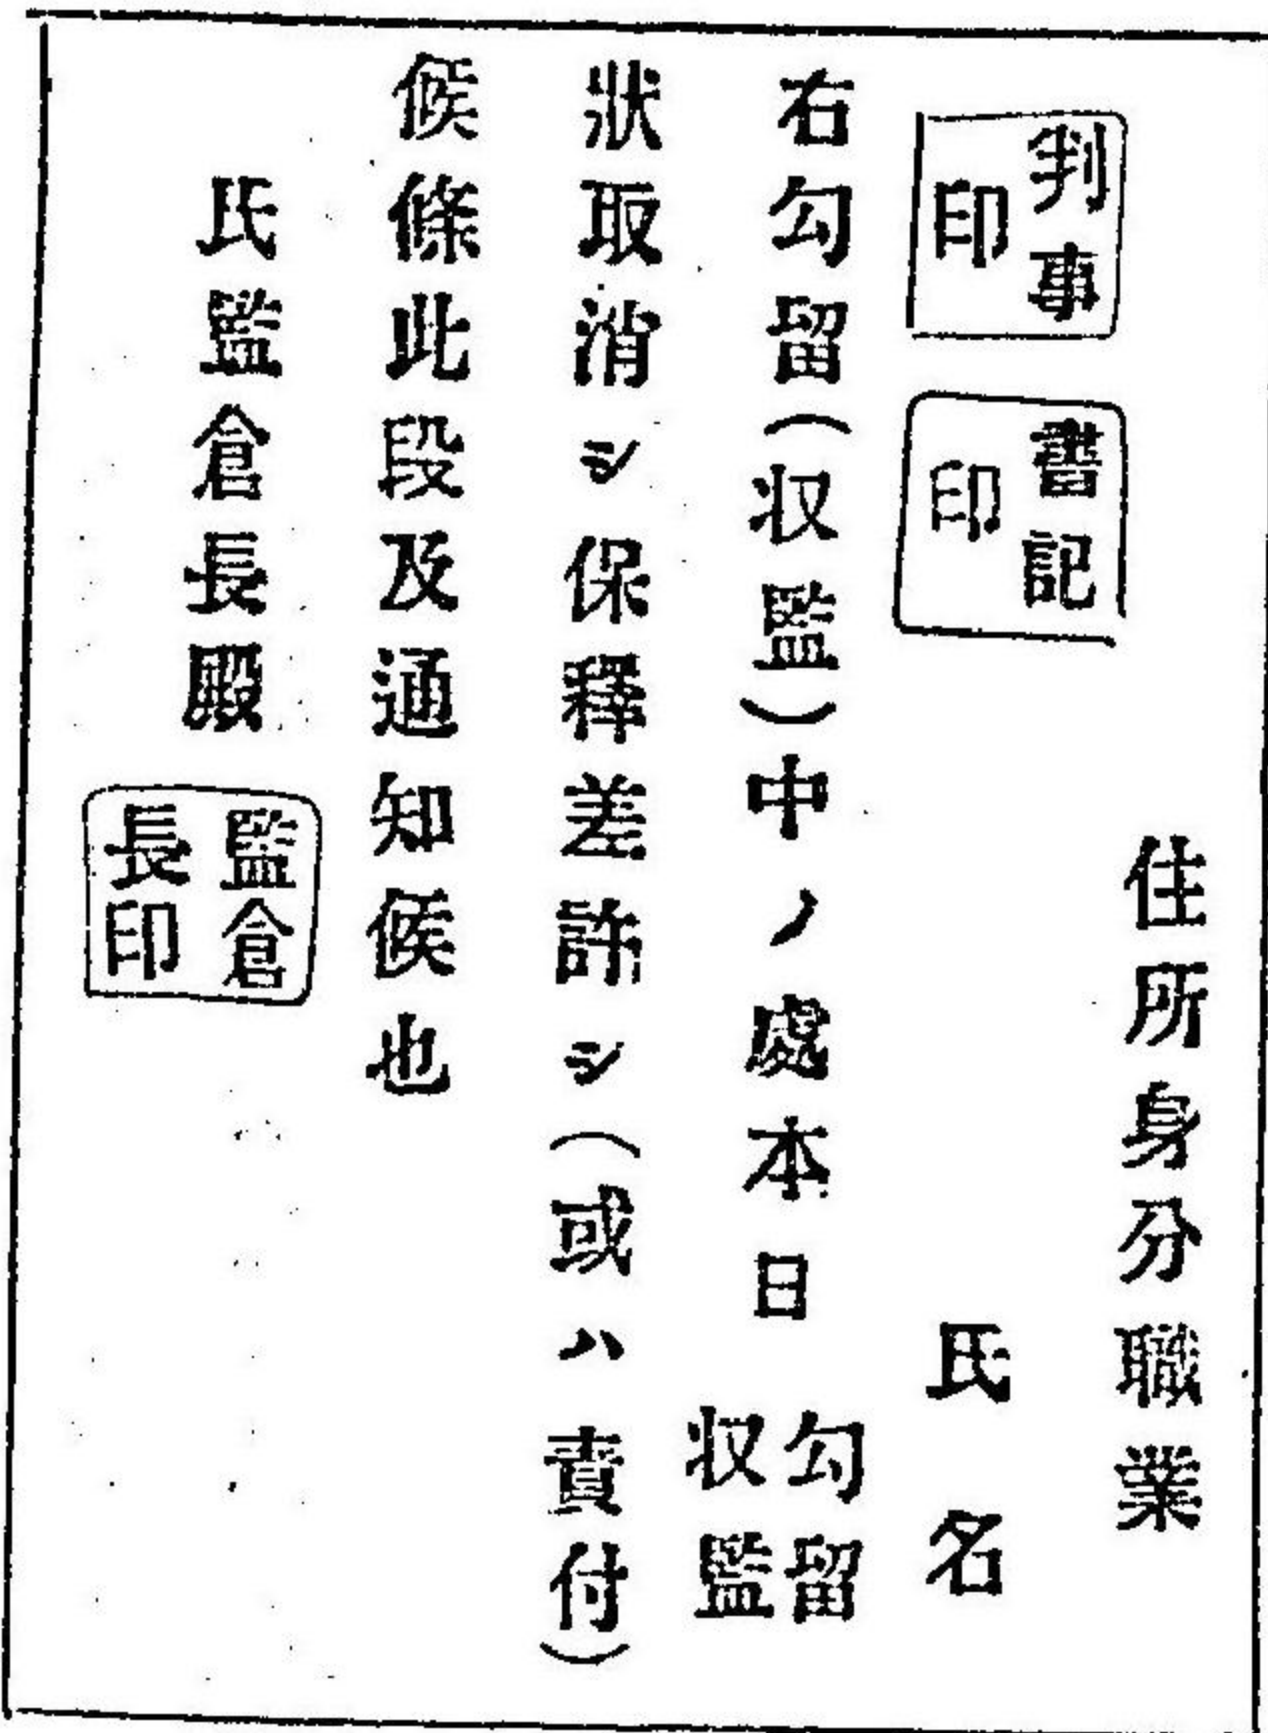 住所身分職業
氏名
判事印
書記印
右勾留(収監)中ノ處本日勾留
収監
狀取消シ保釋差許シ(或ハ責付)
候條此段及通知候也
氏監倉長殿
監倉長印